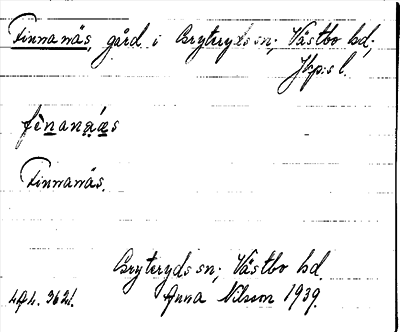 Finnanäs, gård i Bryteryds sn; Västbo hd;
Jkp:s l.
fènanǻ̱s
Finnanäs.
Bryteryds sn; Västbo hd.
Anna Nilsson 1939.